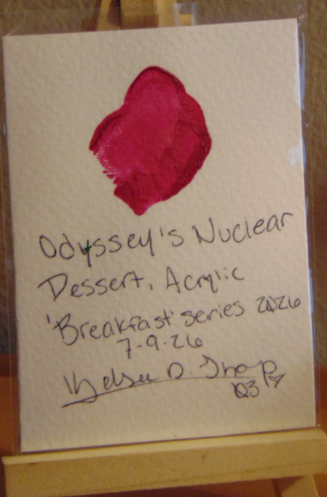 Odyssey's Nuclear
Dessert, Acrylic
'Breakfast' series 2026
7-9-26
Kelsee D. Tharp
103